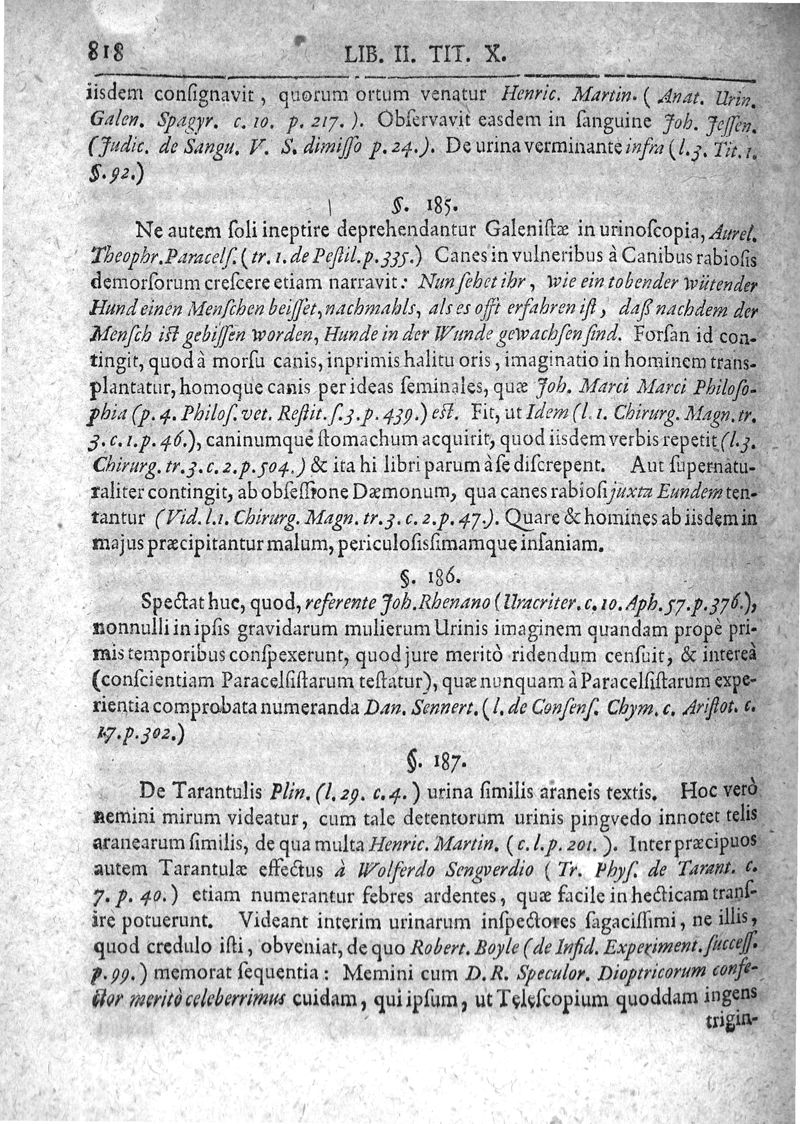 818 LIB. II. TIT. X.
iisdem consignavit, quorum ortum venatur Henric. Martin. (Anat. Urin.
Galen. Spagyr. c. 10. p. 217.). Observavit easdem in sanguine Joh. Jessen.
(Judic. de Sangu. V. S. dimisso p. 24.). De urina verminante infra (l. 3. Tit. 1.
§. 92.)
§. 185.
Ne autem soli ineptire deprehendantur Galenistæ in urinoscopia, Aurel.
Theophr. Paracels. (tr. 1. de Pestil. p. 335.) Canes in vulneribus à Canibus rabiosis
demorsorum crescere etiam narravit: Nun sehet ihr, wie ein tobender wütender
Hund einen Menschen beisset, nachmahls, als es offt erfahren ist, daß nachdem der
Mensch ist gebissen worden, Hunde in der Wunde gewachsen sind. Forsan id con-
tingit, quod à morsu canis, inprimis halitu oris, imaginatio in hominem trans-
plantatur, homoque canis per ideas seminales, quæ Joh. Marci Marci Philoso-
phia (p. 4. Philos. vet. Restit. s. 3. p. 439.) est. Fit, ut Idem (l. 1. Chirurg. Magn. tr.
3. c. 1. p. 46.), caninumque stomachum acquirit, quod iisdem verbis repetit (l. 3.
Chirurg. tr. 3. c. 2. p. 504.) & ita hi libri parum à se discrepent. Aut supernatu-
raliter contingit, ab obsessione Dæmonum, qua canes rabiosi juxta Eundem ten-
tantur (Vid. l. 1. Chirurg. Magn. tr. 3. c. 2. p. 47.). Quare & homines ab iisdem in
majus præcipitantur malum, periculosissimamque insaniam.
§. 186.
Spectat huc, quod, referente Joh. Rhenano (Uracriter. c. 10. Aph. 57. p. 376.),
nonnulli in ipsis gravidarum mulierum Urinis imaginem quandam propè pri-
mis temporibus conspexerunt, quod jure meritò ridendum censuit, & intereà
(conscientiam Paracelsistarum testatur), quæ nunquam à Paracelsistarum expe-
rientia comprobata numeranda Dan. Sennert. (l. de Consens. Chym. c. Aristot. c.
17. p. 302.)
§. 187.
De Tarantulis Plin. (l. 29. c. 4.) urina similis araneis textis. Hoc verò
nemini mirum videatur, cum tale detentorum urinis pingvedo innotet telis
aranearum similis, de qua multa Henric. Martin. (c. l. p. 201.). Inter præcipuos
autem Tarantulæ effectus à Wolferdo Sengverdio (Tr. Phys. de Tarant. c.
7. p. 40.) etiam numerantur febres ardentes, quæ facile in hecticam trans-
ire potuerunt. Videant interim urinarum inspectores sagacissimi, ne illis,
quod credulo isti, obveniat, de quo Robert. Boyle (de Infid. Experiment. success.
p. 99.) memorat sequentia: Memini cum D. R. Speculor. Dioptricorum confe-
ctor meritò celeberrimus cuidam, qui ipsum, ut Telescopium quoddam ingens
trigin-